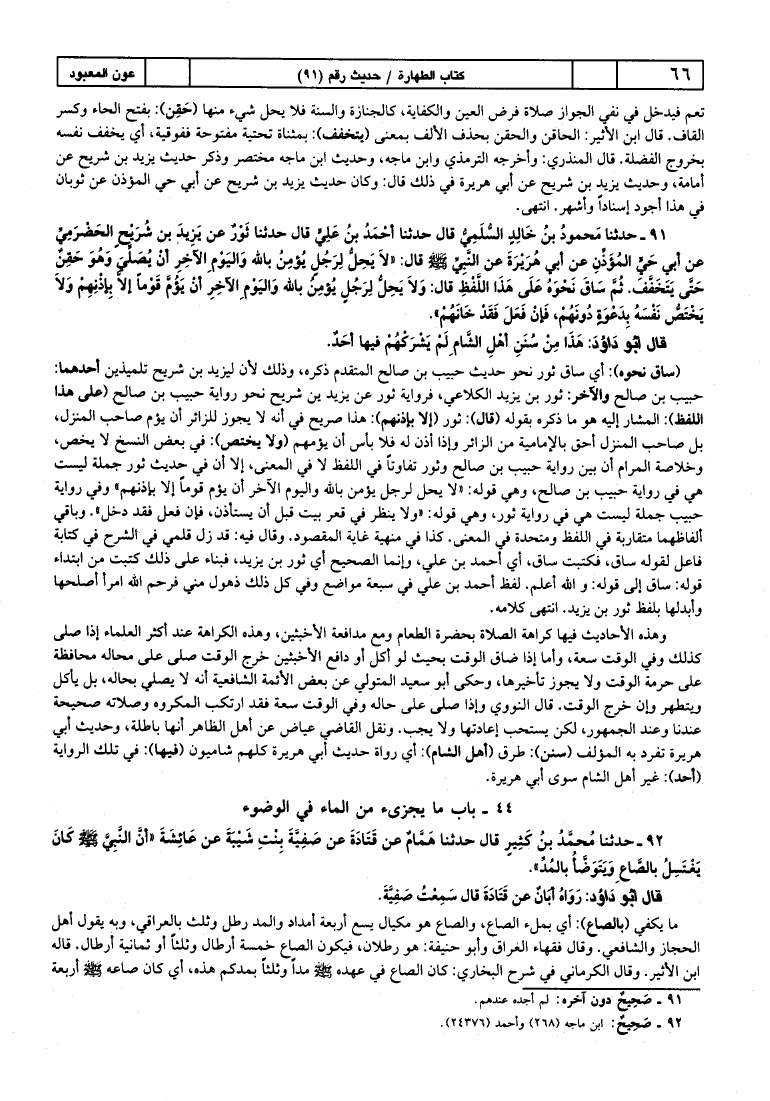 ٦٦
كتاب الطهارة / حديث رقم (٩١)
عون المعبود
تعم فيدخل في نفي الجواز صلاة فرض العين والكفاية، كالجنازة والسنة فلا يحل شيء منها (حَقِن): بفتح الحاء وكسر
القاف. قال ابن الأثير: الحاقن والحقن بحذف الألف بمعنى (يتخفف): بمثناة تحتية مفتوحة ففوقية، أي يخفف نفسه
بخروج الفضلة. قال المنذري: وأخرجه الترمذي وابن ماجه، وحديث ابن ماجه مختصر وذكر حديث يزيد بن شريح عن
أمامة، وحديث يزيد بن شريح عن أبي هريرة في ذلك قال: وكان حديث يزيد بن شريح عن أبي حي المؤذن عن ثوبان
في هذا أجود إسناداً وأشهر. انتهى.
٩١ ـ حدثنا مَحمودُ بنُ خَالِدٍ السُّلَمِيُّ قال حدثنا أحْمَدُ بنُ عَلِيٍّ قال حدثنا ثَوْرٌ عن يَزِيدَ بن شُرَيْحٍ الحَضْرَمِيِّ
عن أبي حَيٍّ المُؤَذِّنِ عن أبي هُرَيْرَةَ عن النَّبِيِّ ﷺ قال: «لاَ يَحِلُّ لِرَجُلٍ يُؤْمِنُ بالله وَاليَوْمِ الآخِرِ أنْ يُصَلِّيَ وَهُوَ حَقِنٌ
حَتَّى يَتَخَفَّفَ. ثُمَّ سَاقَ نَحْوَهُ عَلَى هَذَا اللَّفْظِ قال: وَلاَ يَحِلُّ لِرَجُلٍ يُؤْمِنُ بالله وَاليَوْمِ الآخِرِ أنْ يَؤُمَّ قَوْماً إلاَّ بإِذْنِهِمْ وَلاَ
يَخْتَصُّ نَفْسَهُ بِدَعْوَةٍ دُونَهُمْ، فَإنْ فَعَلَ فَقَدْ خَانَهُمْ».
قال أبُو دَاوُدَ: هَذَا مِنْ سُنَنِ أهْلِ الشَّامِ لَمْ يَشْرَكْهُمْ فيها أحَدٌ.
(ساق نحوه): أي ساق ثور نحو حديث حبيب بن صالح المتقدم ذكره، وذلك لأن ليزيد بن شريح تلميذين أحدهما:
حبيب بن صالح والآخر: ثور بن يزيد الكلاعي، فرواية ثور عن يزيد بن شريح نحو رواية حبيب بن صالح (على هذا
اللفظ): المشار إليه هو ما ذكره بقوله (قال): ثور (إلا بإذنهم): هذا صريح في أنه لا يجوز للزائر أن يؤم صاحب المنزل،
بل صاحب المنزل أحق بالإمامية من الزائر وإذا أذن له فلا بأس أن يؤمهم (ولا يختص): في بعض النسخ لا يخص،
وخلاصة المرام أن بين رواية حبيب بن صالح وثور تفاوتاً في اللفظ لا في المعنى، إلا أن في حديث ثور جملة ليست
هي في رواية حبيب بن صالح، وهي قوله: «لا يحل لرجل يؤمن بالله واليوم الآخر أن يؤم قوماً إلا بإذنهم» وفي رواية
حبيب جملة ليست هي في رواية ثور، وهي قوله: «ولا ينظر في قعر بيت قبل أن يستأذن، فإن فعل فقد دخل». وباقي
ألفاظهما متقاربة في اللفظ ومتحدة في المعنى. كذا في منهية غاية المقصود. وقال فيه: قد زل قلمي في الشرح في كتابة
فاعل لقوله ساق، فكتبت ساق، أي أحمد بن علي، وإنما الصحيح أي ثور بن يزيد، فبناء على ذلك كتبت من ابتداء
قوله: ساق إلى قوله: و الله أعلم. لفظ أحمد بن علي في سبعة مواضع وفي كل ذلك ذهول مني فرحم الله امرأ أصلحها
وأبدلها بلفظ ثور بن يزيد. انتهى كلامه.
وهذه الأحاديث فيها كراهة الصلاة بحضرة الطعام ومع مدافعة الأخبثين، وهذه الكراهة عند أكثر العلماء إذا صلى
كذلك وفي الوقت سعة، وأما إذا ضاق الوقت بحيث لو أكل أو دافع الأخبثين خرج الوقت صلى على محاله محافظة
على حرمة الوقت ولا يجوز تأخيرها، وحكى أبو سعيد المتولي عن بعض الأئمة الشافعية أنه لا يصلي بحاله، بل يأكل
ويتطهر وإن خرج الوقت. قال النووي وإذا صلى على حاله وفي الوقت سعة فقد ارتكب المكروه وصلاته صحيحة
عندنا وعند الجمهور، لكن يستحب إعادتها ولا يجب. ونقل القاضي عياض عن أهل الظاهر أنها باطلة، وحديث أبي
هريرة تفرد به المؤلف (سنن): طرق (أهل الشام): أي رواة حديث أبي هريرة كلهم شاميون (فيها): في تلك الرواية
(أحد): غير أهل الشام سوى أبي هريرة.
٤٤ ـ باب ما يجزىء من الماء في الوضوء
٩٢ ـ حدثنا مُحمَّدُ بنُ كَثِيرٍ قال حدثنا هَمَّامٌ عن قَتَادَةَ عن صَفِيَّةَ بِنْتِ شَيْبَةَ عن عَائِشَةَ «أنَّ النَّبِيَّ ﷺ كَانَ
يَغْتَسِلُ بالصَّاعِ وَيَتَوَضَّأُ بالمُدِّ».
قال أبُو دَاوُدَ: رَوَاهُ أبَانُ عن قَتَادَةَ قال سَمِعْتُ صَفِيَّةَ.
ما يكفي (بالصاع): أي بملء الصاع، والصاع هو مكيال يسع أربعة أمداد والمد رطل وثلث بالعراقي، وبه يقول أهل
الحجاز والشافعي. وقال فقهاء العراق وأبو حنيفة: هو رطلان، فيكون الصاع خمسة أرطال وثلثاً أو ثمانية أرطال. قاله
ابن الأثير. وقال الكرماني في شرح البخاري: كان الصاع في عهده ﷺ مداً وثلثاً بمدكم هذه، أي كان صاعه ﷺ أربعة
٩١ ـ صَحِيحٌ دون آخره: لم أجده عندهم.
٩٢ ـ صَحِيحٌ: ابن ماجه (٢٦٨) وأحمد (٢٤٣٧٦).